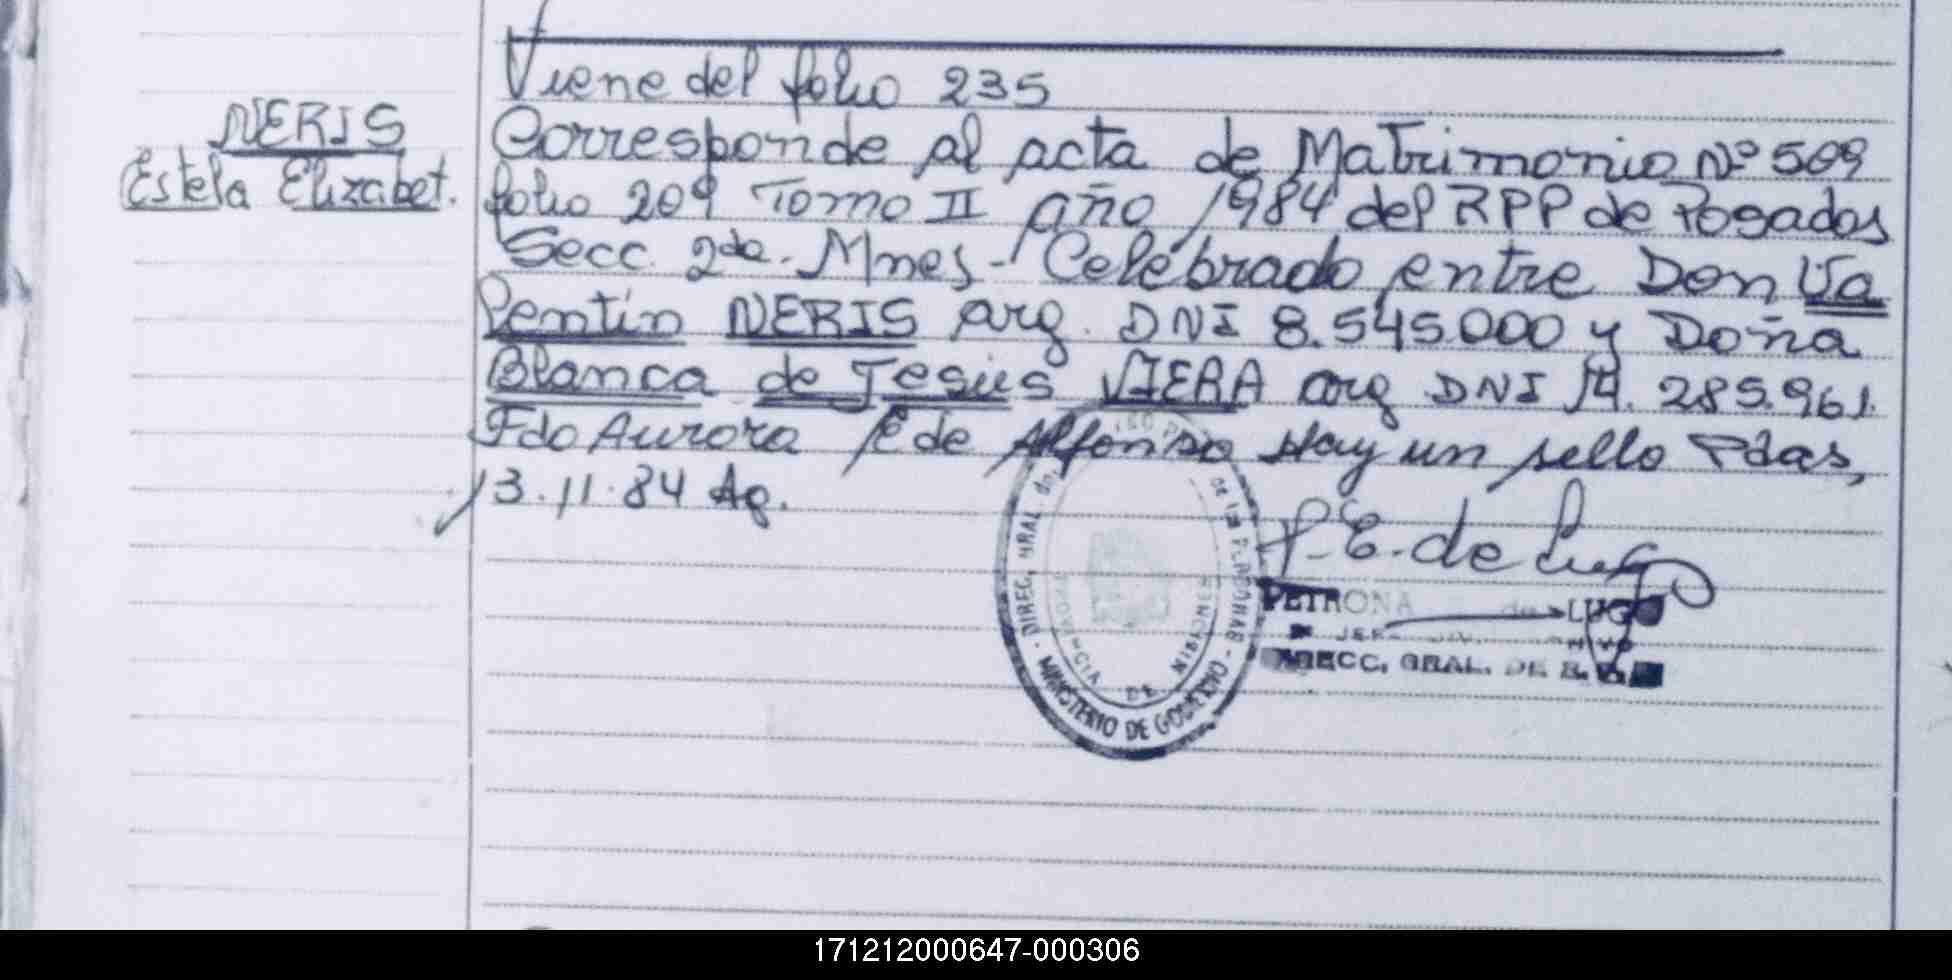 Viene del folio 235
NERIS
Estela Elizabet.
Corresponde al acta de Matrimonio Nº 509
folio 209 Tomo II año 1984 del RPP de Posadas
Secc. 2da. Mnes - Celebrado entre Don Va
lentin NERIS arg. DNI 8.545.000 y Doña
Blanca de Jesús VIERA arg DNI 14.285.961.
Fdo Aurora E de Alfonso Hay un sello Pdas,
13.11.84 Ag.
P. E. de Lugo
PETRONA de LUGO
DIRECC. GRAL. DE R.
DIREC. GRAL. del DE LAS PERSONAS
PROVINCIA DE MISIONES
- MINISTERIO DE GOBIERNO -
171212000647-000306